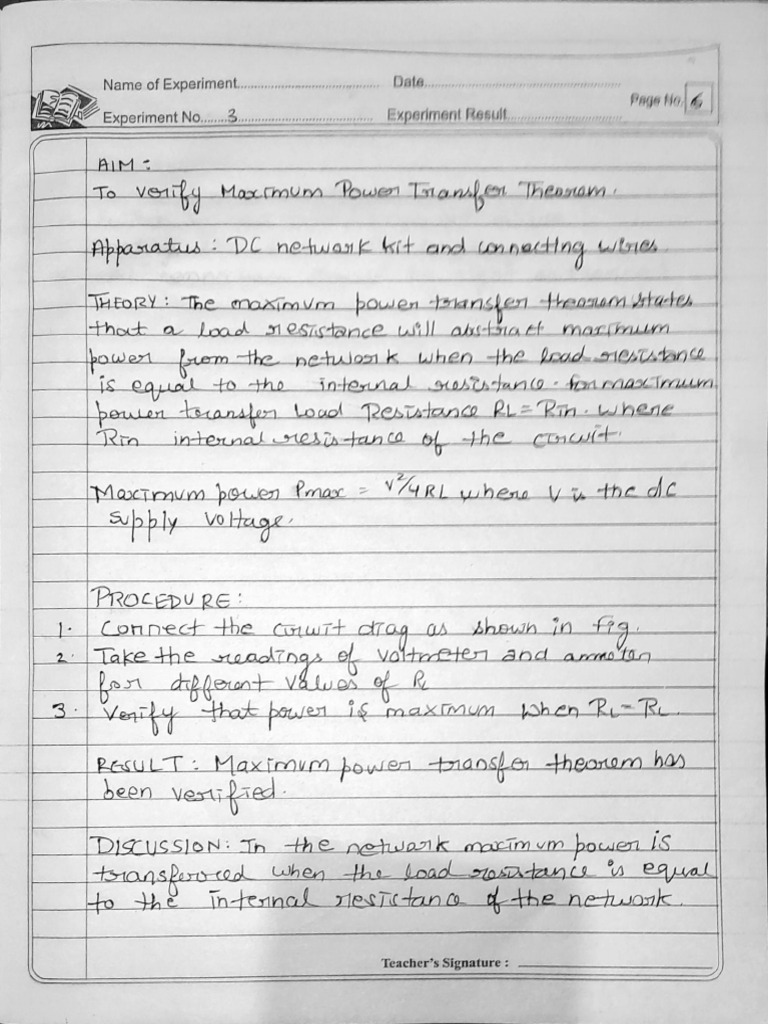 Name of Experiment........ Date........
Page No. 6
Experiment No. 3 Experiment Result........
AIM:
To verify Maximum Power Transfer Theoram.
Apparatus: DC network kit and connecting wires.
THEORY: The maximum power transfer theorum states
that a load resistance will abstract maximum
power from the network when the load resistance
is equal to the internal resistance. for maximum
power transfer Load Resistance RL = Rin. where
Rin internal resistance of the circuit.
Maximum power Pmax = V²/4RL where V is the dc
supply voltage.
PROCEDURE:
1. Connect the circuit diag as shown in fig.
2. Take the readings of voltmeter and ammeter
for different values of RL
3. Verify that power is maximum when RL = RL.
RESULT: Maximum power transfer theorem has
been verified.
DISCUSSION: In the network maximum power is
transferred when the load resistance is equal
to the internal resistance of the network.
Teacher's Signature :